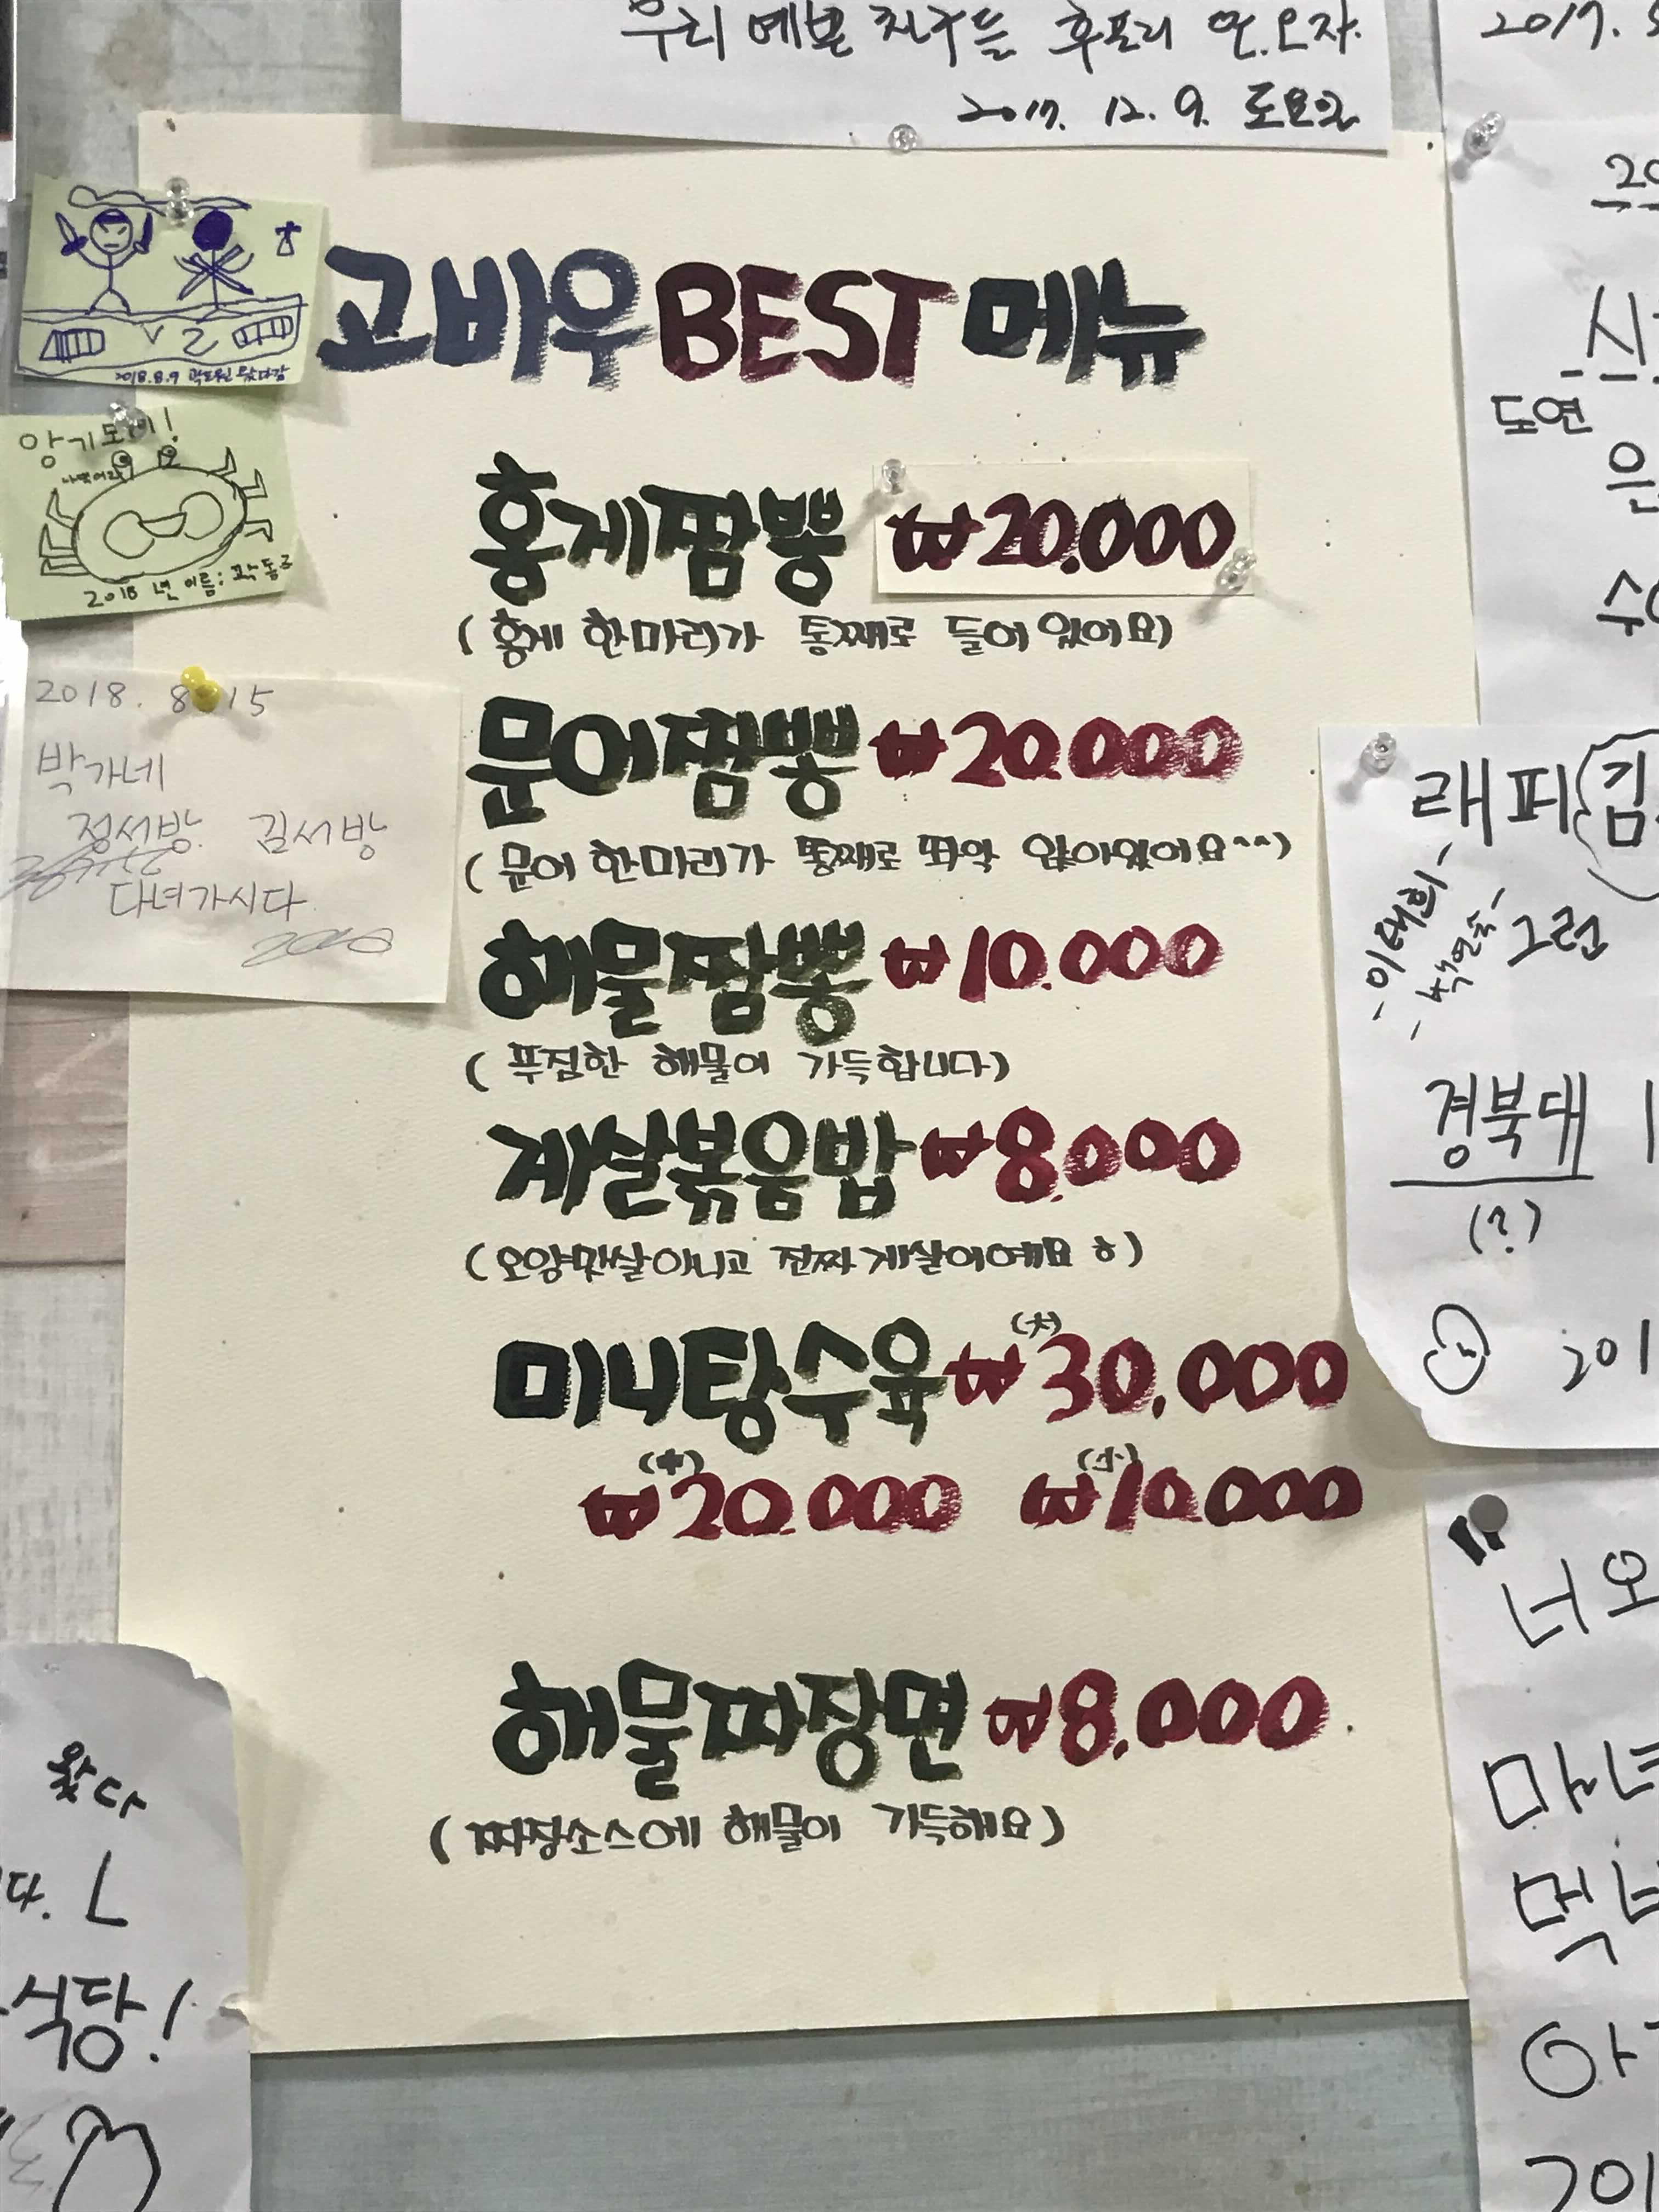 우리 예쁜 친구들 후포리 안.오자.
2017. 12. 9. 토요일
고바우 BEST 메뉴
홍게짬뽕 ₩20.000
(홍게 한마리가 통째로 들어있어요)
문어짬뽕 ₩20.000
(문어 한마리가 통째로 똬악 앉아있어요^^)
해물짬뽕 ₩10.000
(푸짐한 해물이 가득합니다)
게살볶음밥 ₩8.000
(오양맛살아니고 진짜 게살이예요 ㅎ)
미니탕수육 (大) ₩30,000
(中) ₩20.000 (小) ₩10.000
해물짜장면 ₩8.000
(짜장소스에 해물이 가득해요)
2018.8.9
앙기모띠!
2018 년 이름: 곽동
2018. 8. 15
박가네
정서방. 김서방
다녀가시다
왔다
다.
식당!
2017.
도연
은
수
래피 김
-이태희-
그런
경북대
(?)
201
너 오